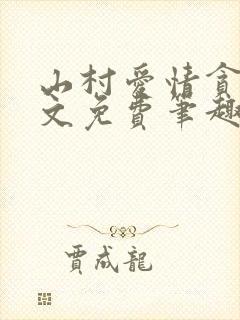 山村爱情貪
文免費筆趣
賈成龍